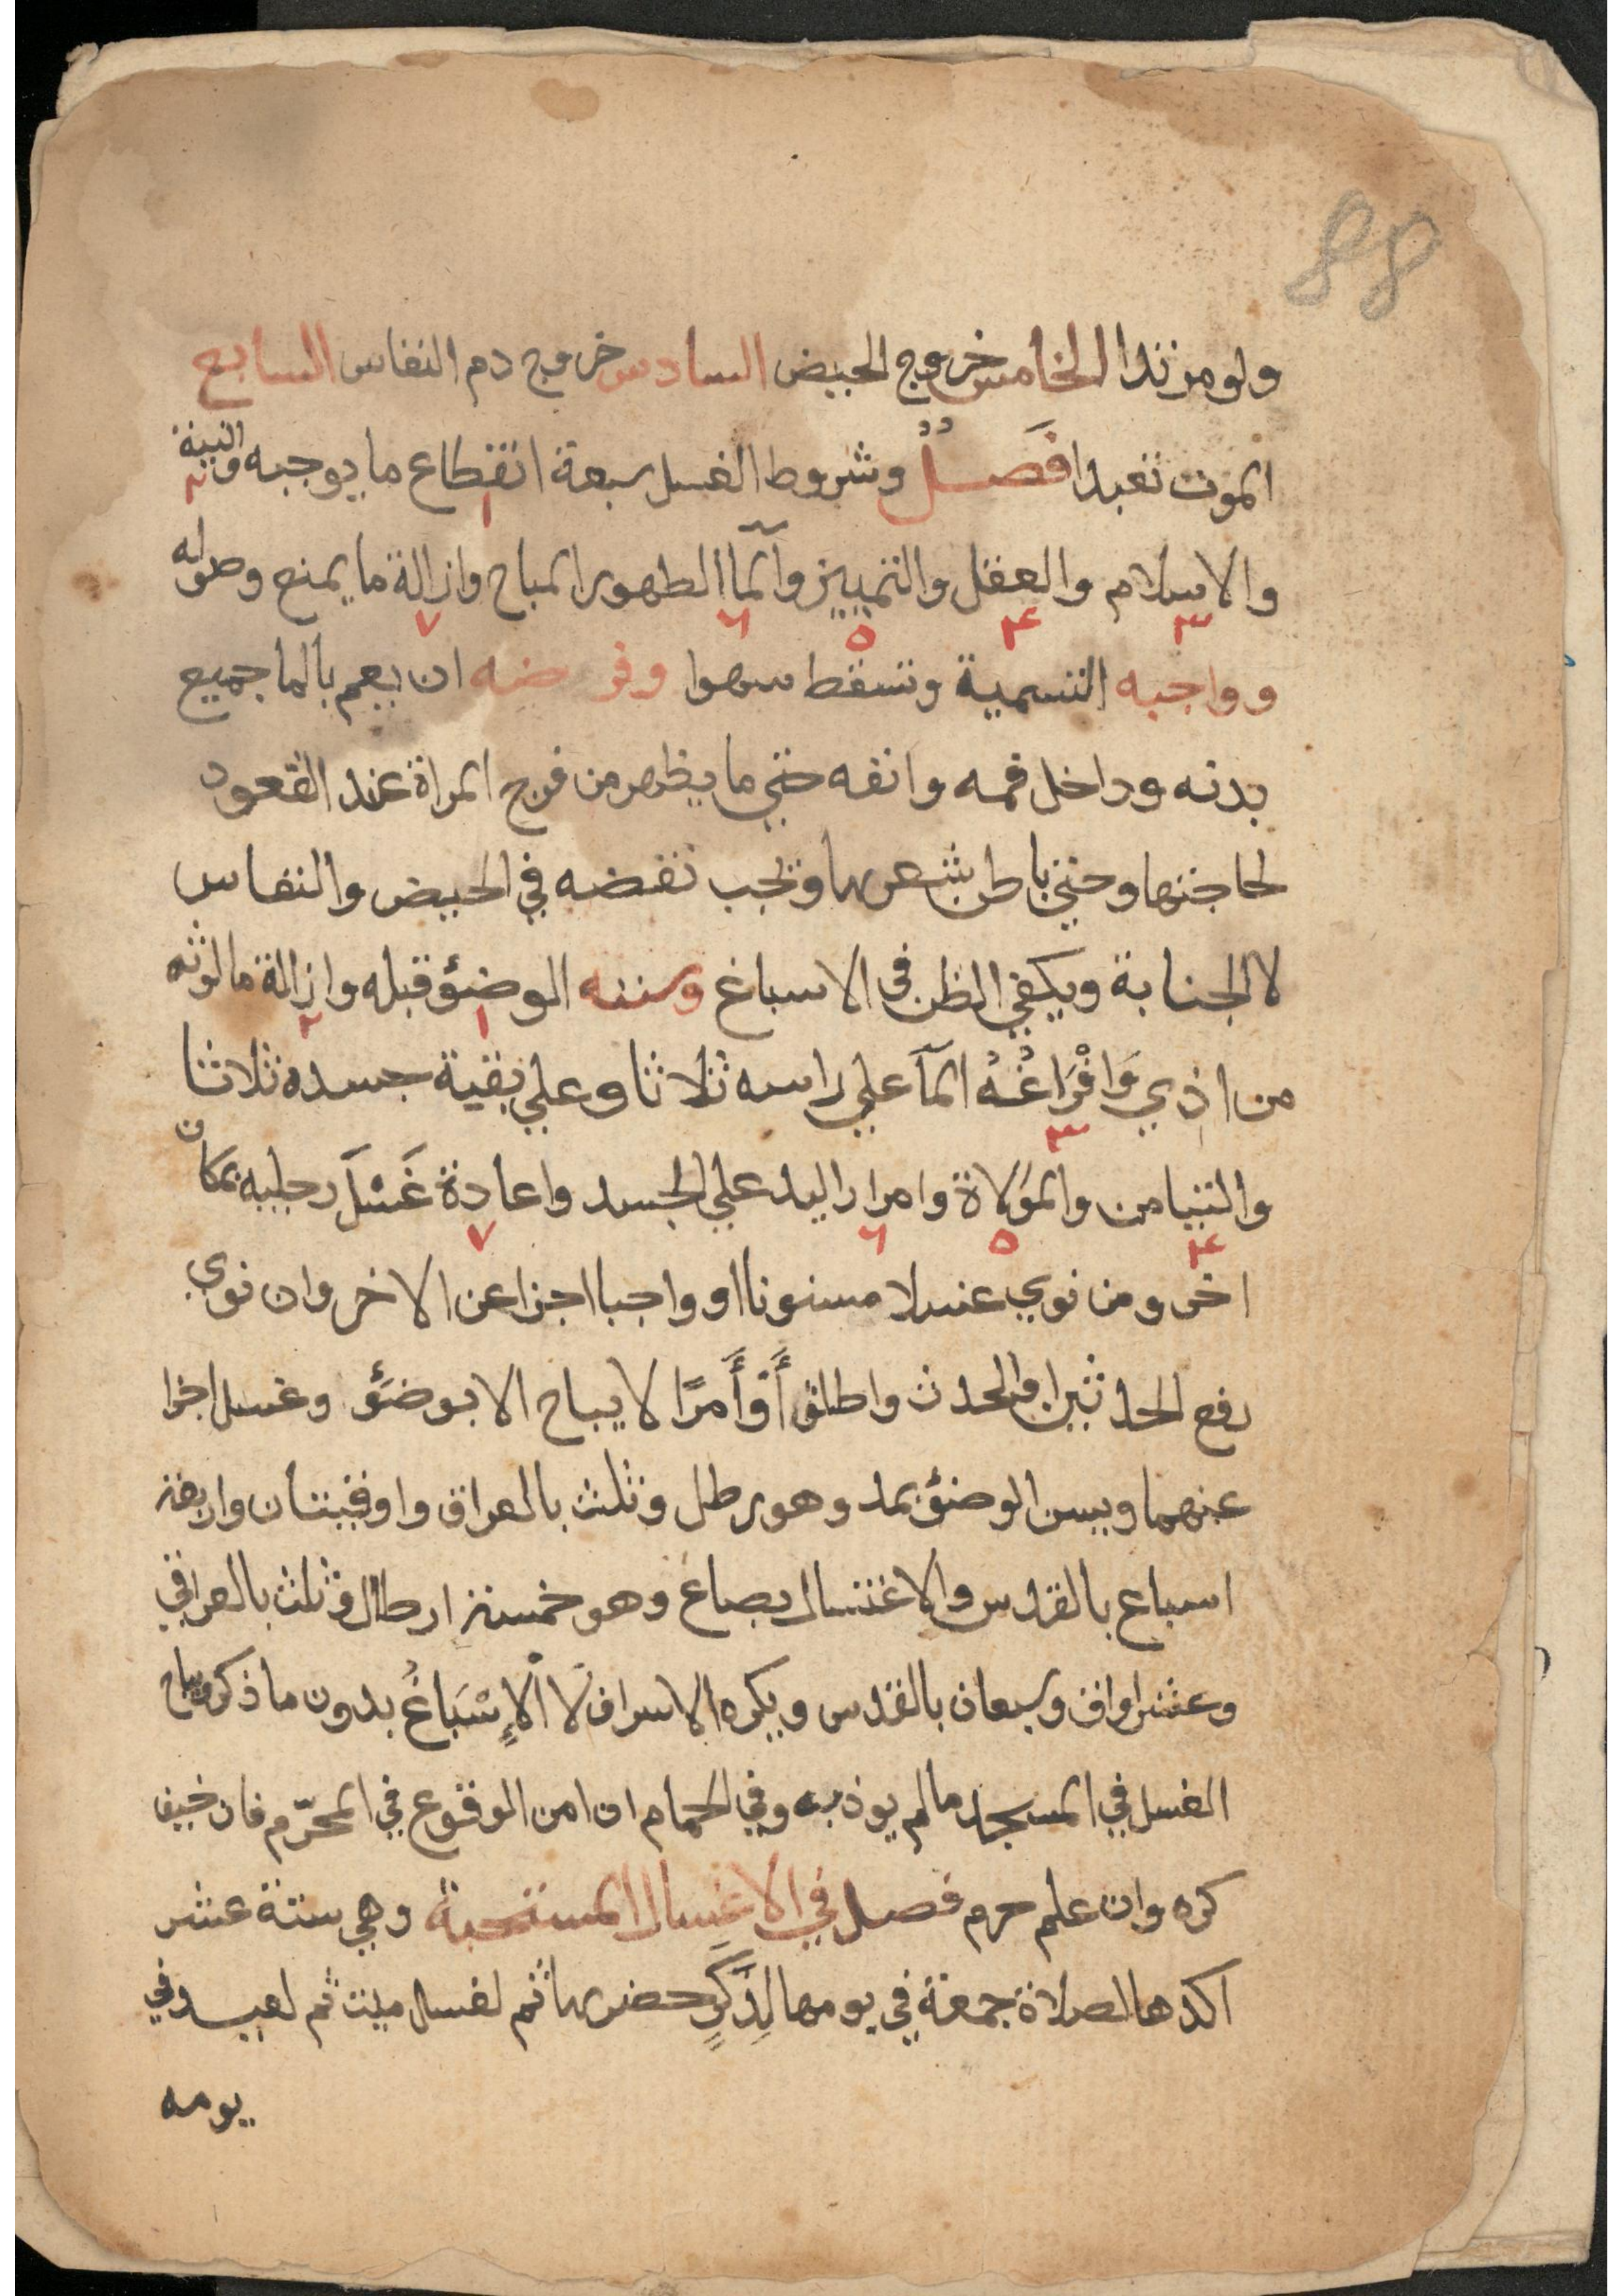 88
ولو مرتدا الخامس خروج الحيض السادس خروج دم النفاس السابع
الموت تعبدا فَصـْـلٌ وشروط الغسل سبعة انقطاع ما يوجبه والنية
١ ٢
والاسلام والعقل والتمييز والمآ الطهور المباح وازالة ما يمنع وصوله
٣ ۴ ۵ ٦ ٧
وواجبه التسمية وتسقط سهوا وفرضه ان يعم بالما جميع
بدنه وداخل فمه وانفه حتي ما يظهر من فرج المراة عند القعود
لحاجتها وحتي باطن شعرها ويجب نقضه في الحيض والنفاس
لا الجنابة ويكفي الظن في الاسباغ وسننه الوضؤ قبله وازالة ما لوثه
١ ٢
من اذي وَافْرَاغُهُ المآ علي راسه ثلاثا وعلي بقية جسده ثلاثا
٣
والتيامن والموَلاة وامرار اليد علي الجسد واعادة غَسْلَ رجليه بمكان
۴ ۵ ٦ ٧
اخر ومن نوي غسلا مسنونا او واجبا اجزا عن الاخر وان نوي
رفع الحدثين او الحدث واطلق أَوْ أَمرًا لا يباح الا بوضؤ وغسل اجزا
عنهما ويسن الوضؤ بمد وهو رطل وثلث بالعراق واوقيتان واربعة
اسباع بالقدس والاغتسال بصاع وهو خمسة ارطال وثلث بالعراقي
وعشر اواق وسبعان بالقدس ويكره الاسراف لَا الْإِسْبَاغُ بدون ما ذكر ويباح
الغسل في المسجد ما لم يوذ به وفي الحمام ان امن الوقوع في المحرّم فان خيف
كره وان علم حرم فصل في الاغسال المستحبة وهي ستة عشر
اكدها لصلاة جمعة في يومها لِذَكَرٍ حضرها ثم لغسل ميت ثم لعيد في
يومه